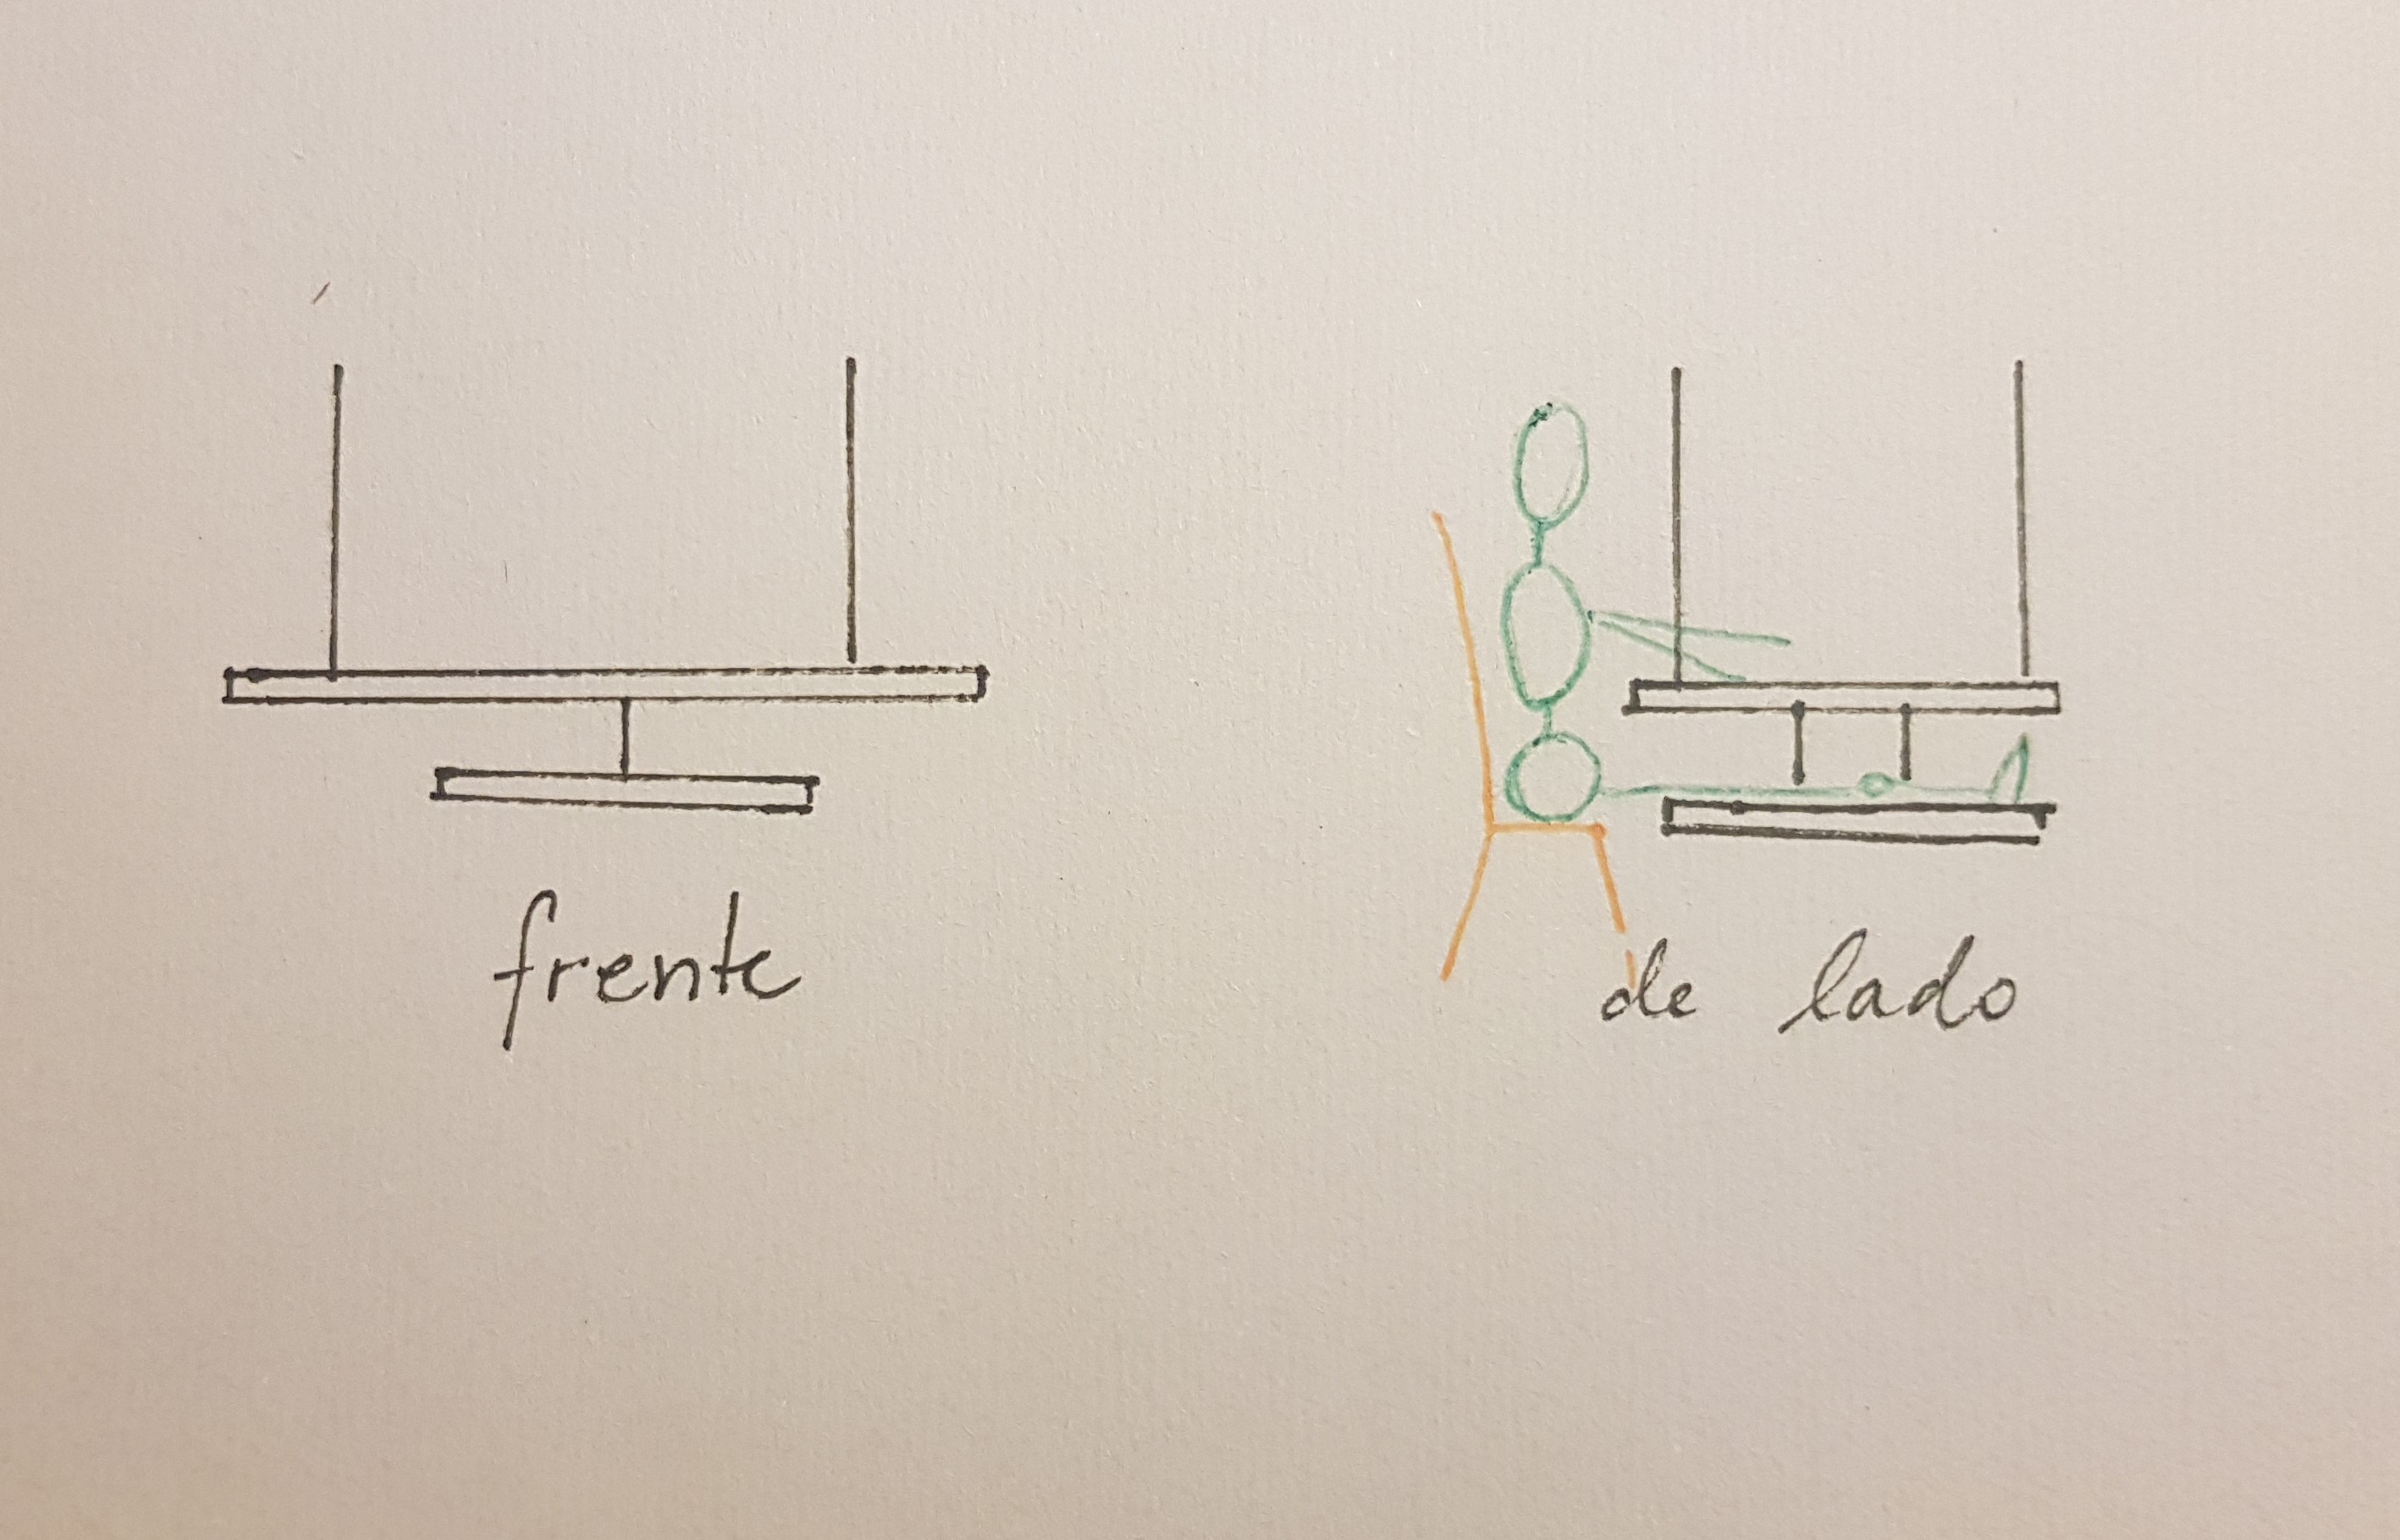 frente
de lado